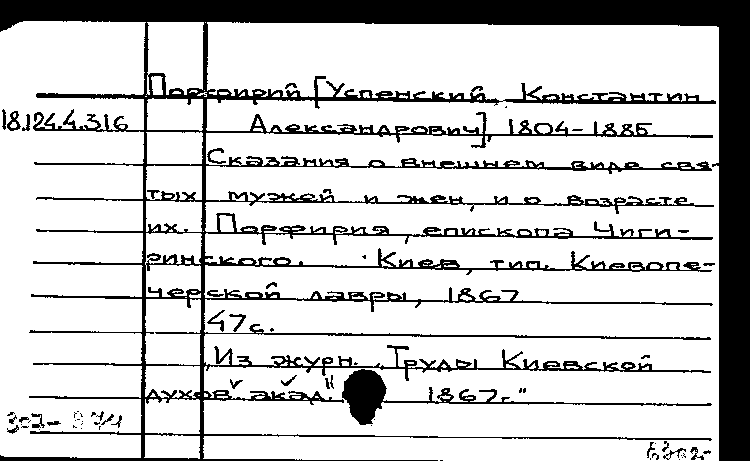 Порфирий [Успенский, Константин
18.124.4.316 Александрович], 1804-1885
Сказания о внешнем виде свя-
тых мужей и жен, и о возрасте
их. Порфирия, епископа Чиги-
ринского. Киев, тип. Киевопе-
черской лавры, 1867
47с.
Из журн. „Труды Киевской
духов. акад." 1867г."